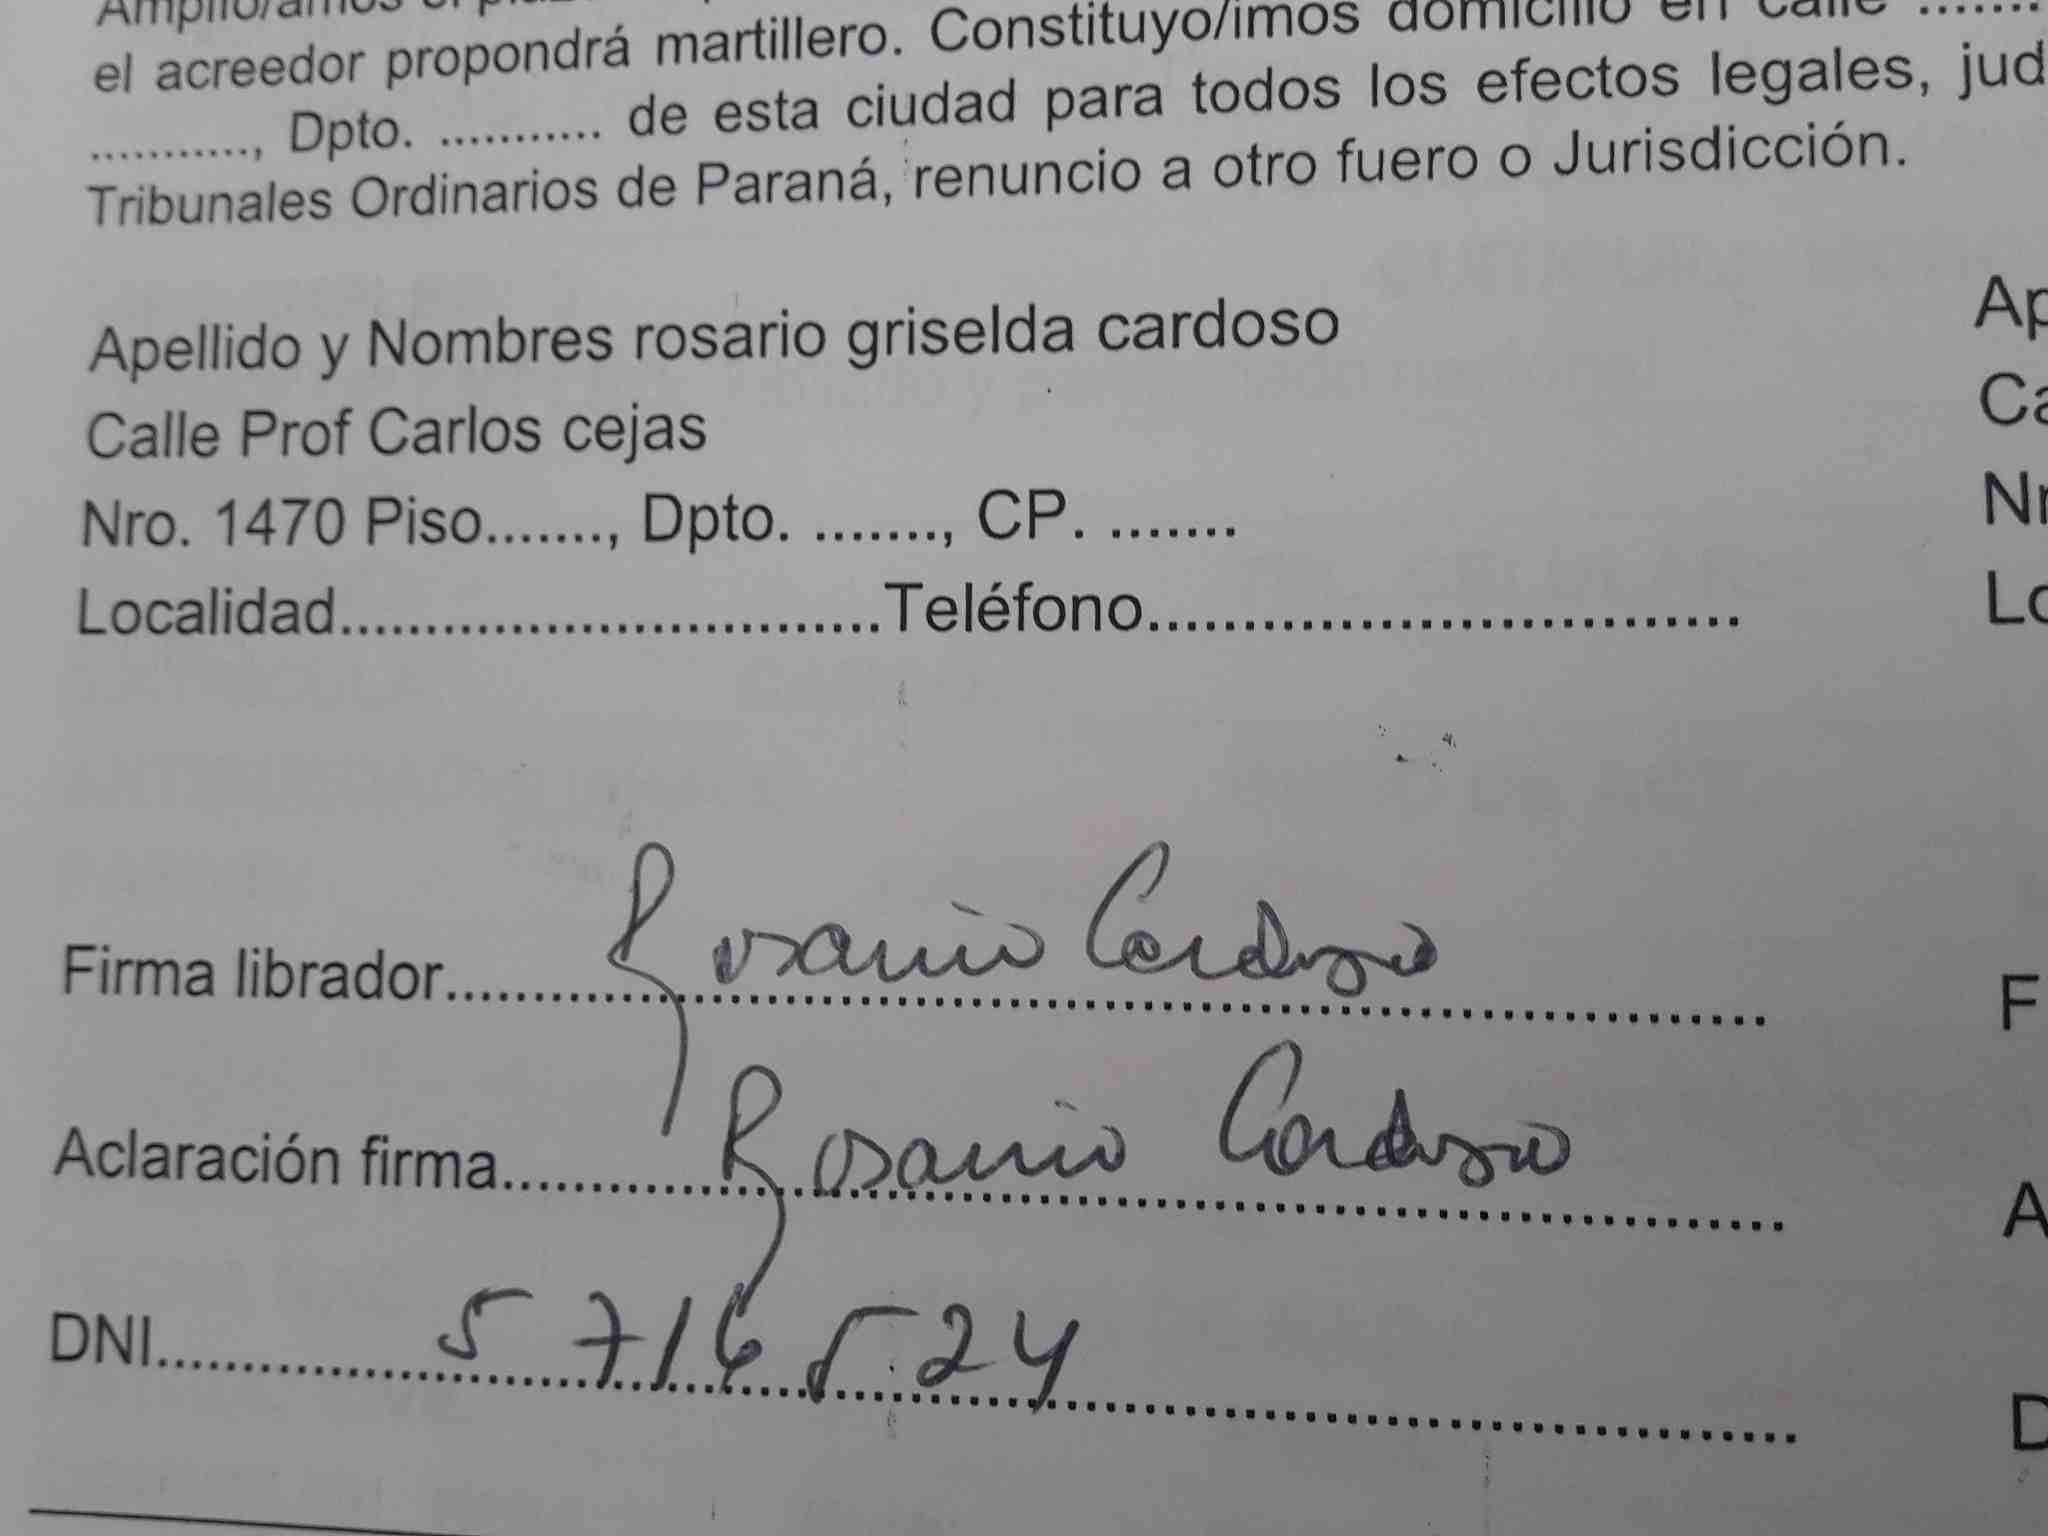 Amplio/amos el
el acreedor propondrá martillero. Constituyo/imos domicilio en calle .......
..........., Dpto. ........... de esta ciudad para todos los efectos legales, jud
Tribunales Ordinarios de Paraná, renuncio a otro fuero o Jurisdicción.
Apellido y Nombres rosario griselda cardoso
Ap
Calle Prof Carlos cejas
Ca
Nro. 1470 Piso......., Dpto. ......., CP. .......
Nr
Localidad................................Teléfono................................
Lo
Firma librador.......... Rosario Cardoso
F
Aclaración firma.......... Rosario Cardoso
A
DNI.......... 5716524
D